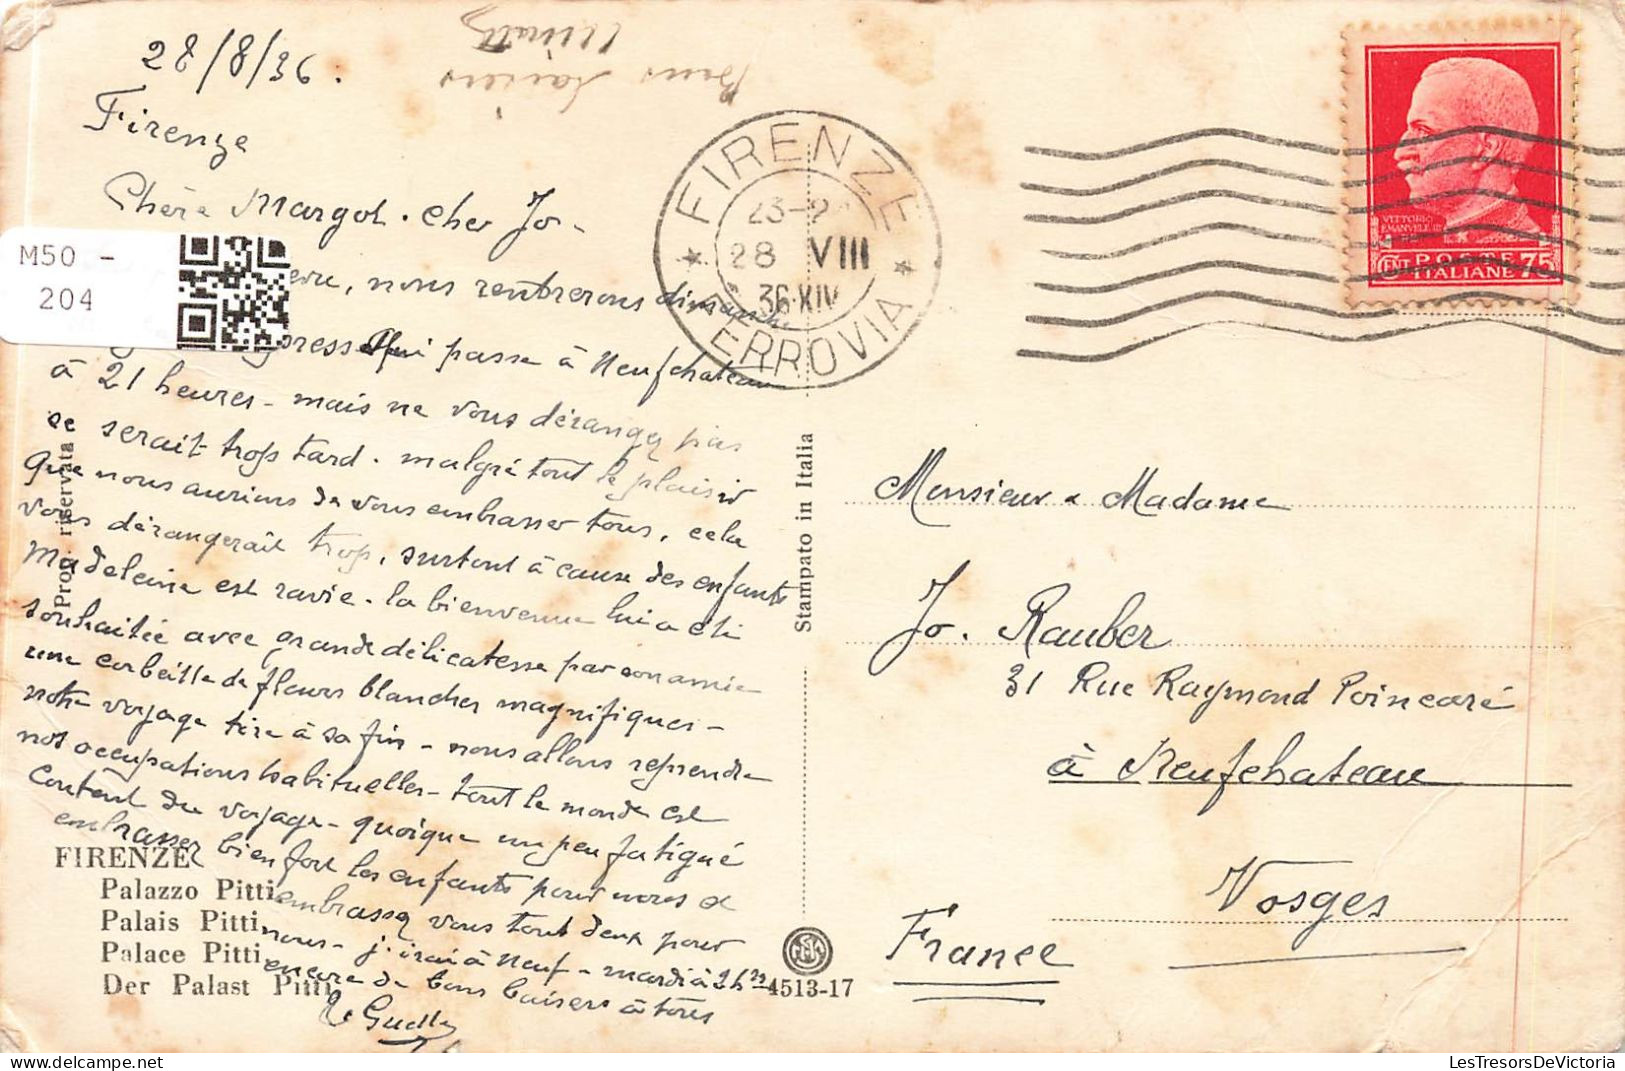 28/8/36.
Firenze
Chère Margot. Cher Jo-
nous rentrerons dimanche
qui passe à Neufchateau
à 21 heures - mais ne vous dérangez pas
ce serait trop tard. malgré tout le plaisir
que nous aurions de vous embrasser tous, cela
vous dérangerait trop, surtout à cause des enfants
Madeleine est ravie - la bienvenue lui a été
souhaitée avec grande délicatesse par son amie
une corbeille de fleurs blanches magnifiques -
notre voyage tire à sa fin - nous allons reprendre
nos occupations habituelles - tout le monde est
content du voyage - quoique un peu fatigué
embrassez bien fort les enfants pour nous et
embrassez vous tout deux pour
nous - j'irai à Neuf - mardi à 2h
encore de bons baisers à tous
Bons baisers
FIRENZE
Palazzo Pitti
Palais Pitti
Palace Pitti
Der Palast Pitti
Propr. riservata
Stampato in Italia
4513-17
FIRENZE
28 VIII
36·XIV
FERROVIA
VITTORIO
EMANVELE III
POSTE
CENT ITALIANE 75
Monsieur & Madame
Jo. Rauber
31 Rue Raymond Poincaré
à Neufchateau
Vosges
France
M50 -
204
LesTresorsDeVictoria.com